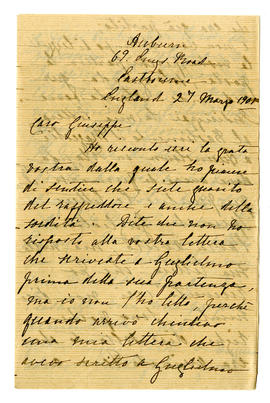 Auburn
69. Kings Road
Eastbourne
England 27 Marzo 1901
Caro Giuseppe
Ho ricevuto ieri la grata
vostra dalla quale ho piacere
di sentire che siete guarito
del raffreddore e anche della
sordità. Dite che non ho
risposto alla vostra lettera
che scrivevate a Guglielmo
prima della sua partenza,
ma io non l'ho letta, perchè
quando arrivò
una mia lettera che
avevo scritto a Guglielmo